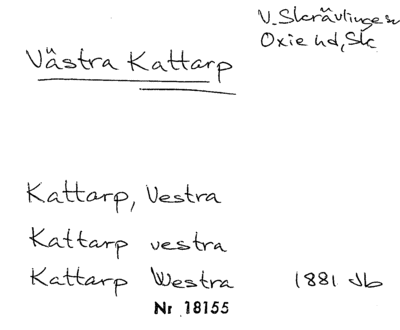 V. Skrävlinge sn
Oxie hd, Sk
Västra Kattarp
Kattarp, Vestra
Kattarp vestra
Kattarp Westra 1881 Jb
Nr 18155